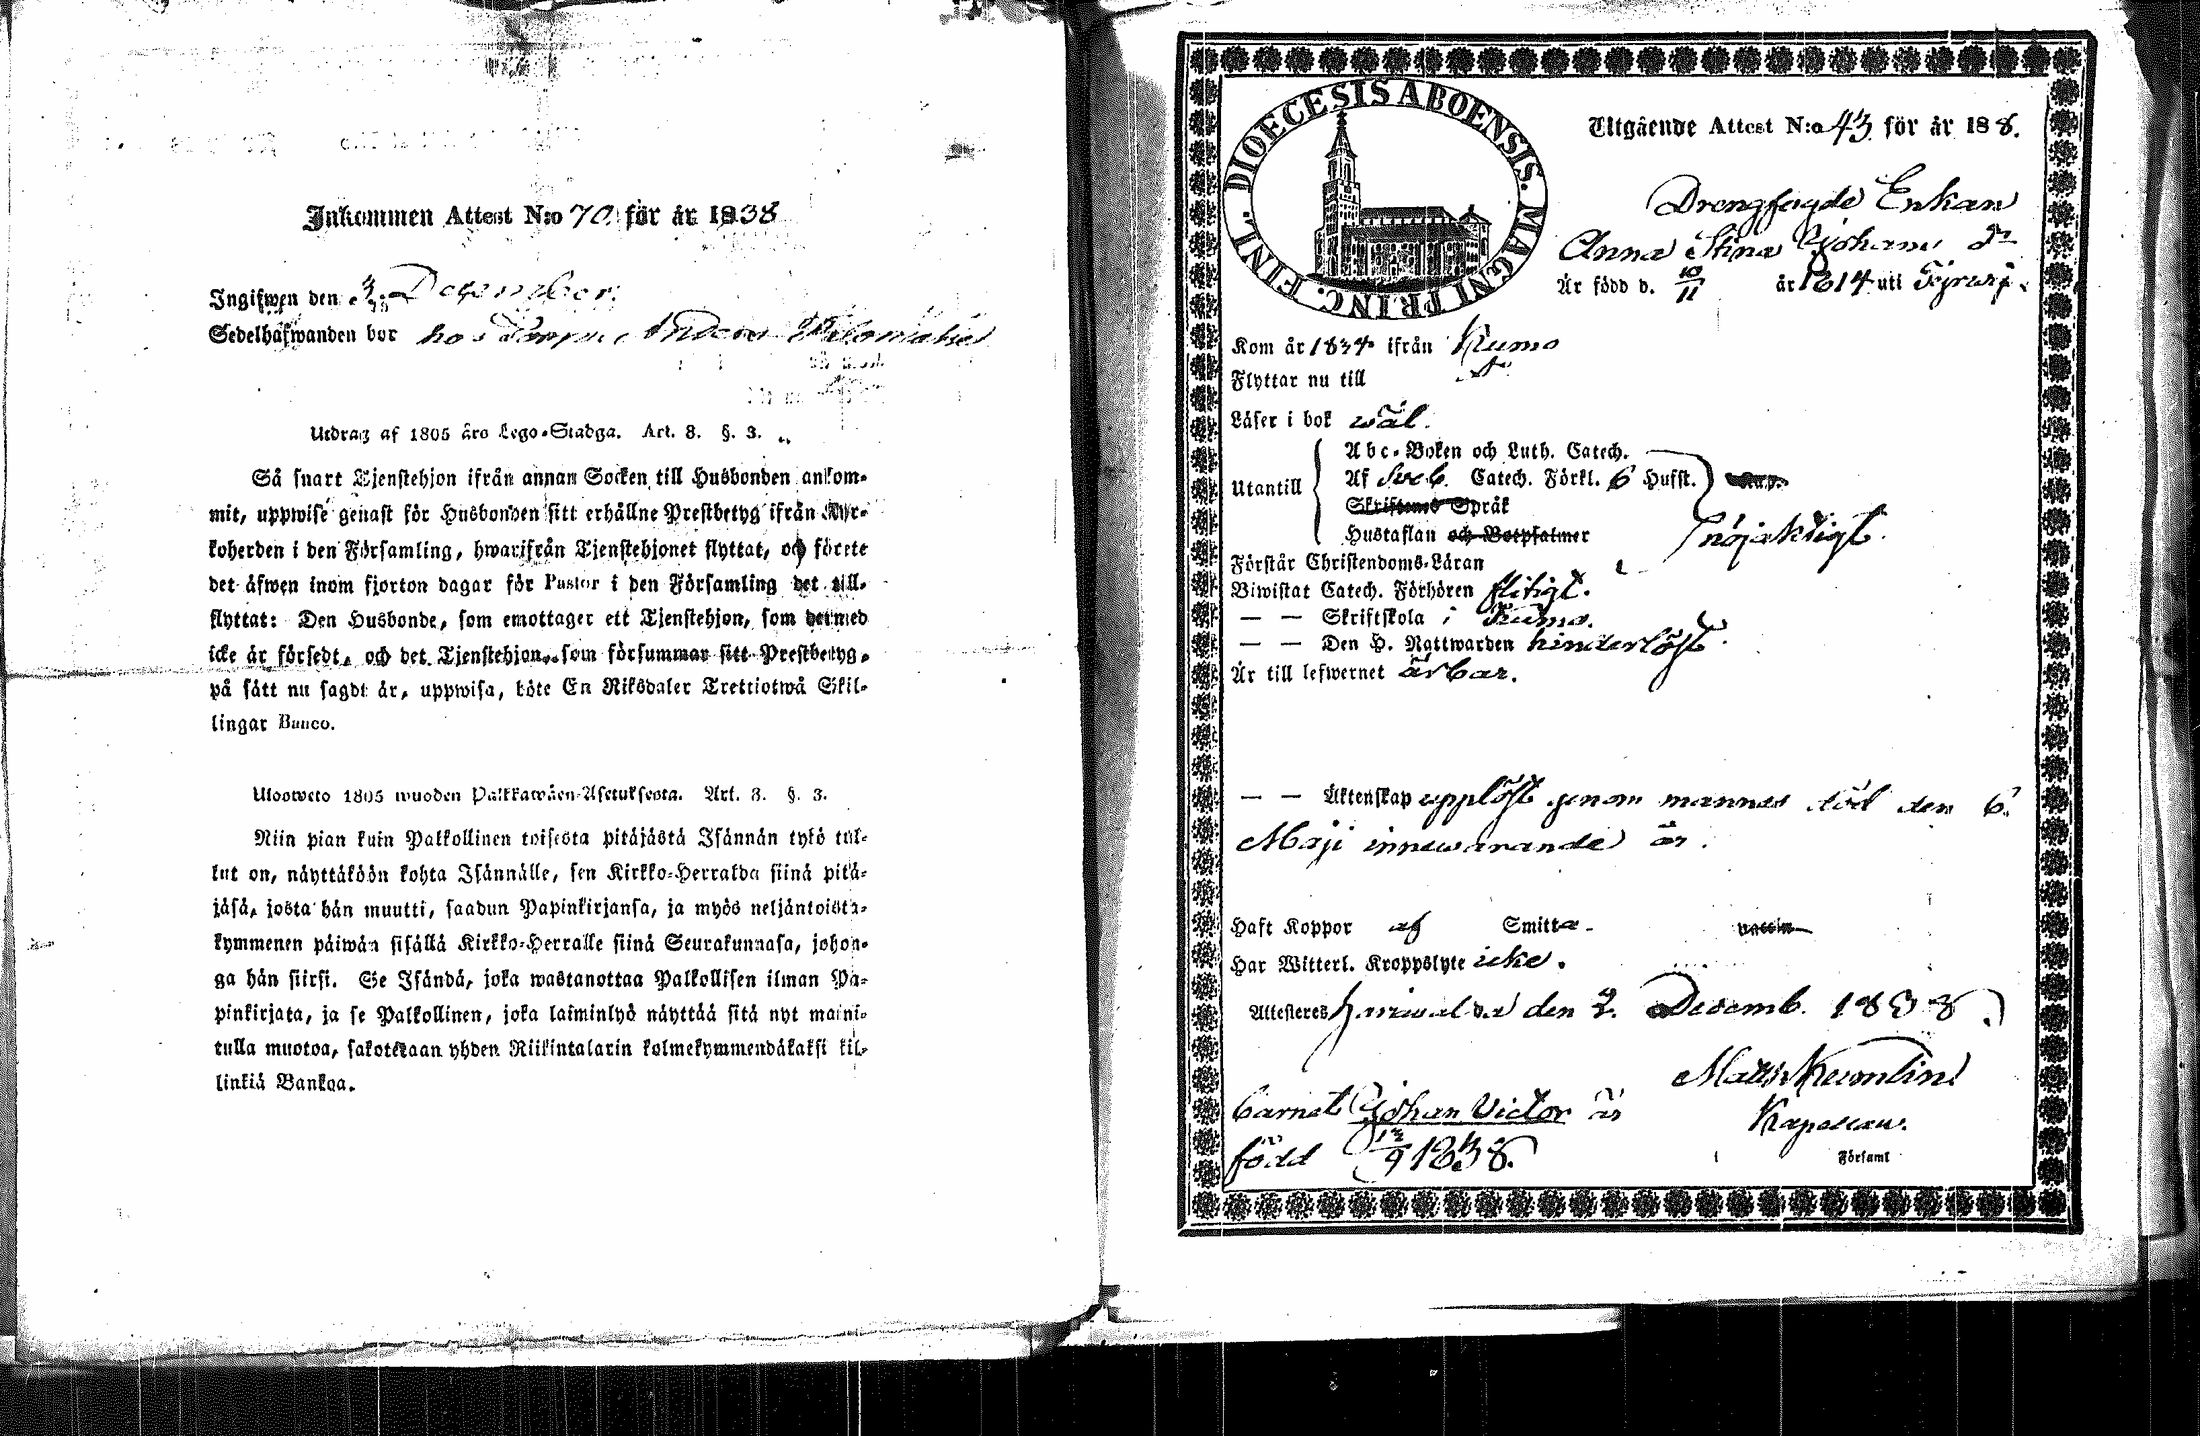 Inkommen Attest N:o 70 för år 1838
Ingifwen den December.
Sedelhafwanden bor hos Anders
Utdrag af 1805 års Lego-Stadga. Art. 8. §. 3.
Så snart Tjenstehjon ifrån annan Socken till Husbonden ankom-
mit, uppwise genast för Husbonden sitt erhållne Prestbetyg ifrån Kyr-
koherden i den Församling, hwarifrån Tjenstehjonet flyttat, och förete
det äfwen inom fjorton dagar för Pastor i den Församling det till-
flyttat: Den Husbonde, som emottager ett Tjenstehjon, som dermed
icke är försedt, och det Tjenstehjon, som försummar sitt Prestbetyg,
på sätt nu sagdt är, uppwisa, böte En Riksdaler Trettiotwå Skil-
lingar Banco.
Ulosweto 1805 wuoden Palkkawäen-Asetuksesta. Art. 8. §. 3.
Niin pian kuin Palkollinen toisesta pitäjästä Isännän tykö tul-
lut on, näyttäköön kohta Isännälle, sen Kirkko-Herralda siinä pitä-
jäsä, josta hän muutti, saadun Papinkirjansa, ja myös neljäntoista-
kymmenen päiwän sisällä Kirkko-Herralle siinä Seurakunnasa, johon-
ga hän siirsi. Se Isändä, joka wastanottaa Palkollisen ilman Pa-
pinkirjata, ja se Palkollinen, joka laiminlyö näyttää sitä nyt maini-
tulla muotoa, sakotetaan yhden Riikintalarin kolmekymmendäkaksi kil-
linkiä Bankoa.
DIOECESIS ABOENSIS. MAGNI PRINC. FINL.
Utgående Attest N:o 43 för år 188.
Drengfogde Enkan
Anna Stina Johans dr
Är född d. 10/11 år 1814 uti
Kom år 1834 ifrån Kumo
Flyttar nu till
Läser i bok wäl.
Abc-Boken och Luth. Catech.
Utantill Af Sveb. Catech. Förkl. 6 Hufst.
Skriftenes Språk
Hustaflan och Botpsalmer nöjaktigt.
Förstår Christendoms-Läran
Biwistat Catech. Förhören flitigt.
— — Skriftskola i Kumo.
— — Den H. Nattwarden hinderlöst
Är till lefwernet ärbar.
— — Äktenskap upplöst genom mannens död den 6.
Maji innewarande år.
Haft Koppor af Smitta. vaccin
Har Witterl. Kroppslyte icke.
Attesteres den 2. Decemb. 1838.
Matts Kumlin
barnet Johan Victor är
Kapellan.
född 12/9 1838.
Församl